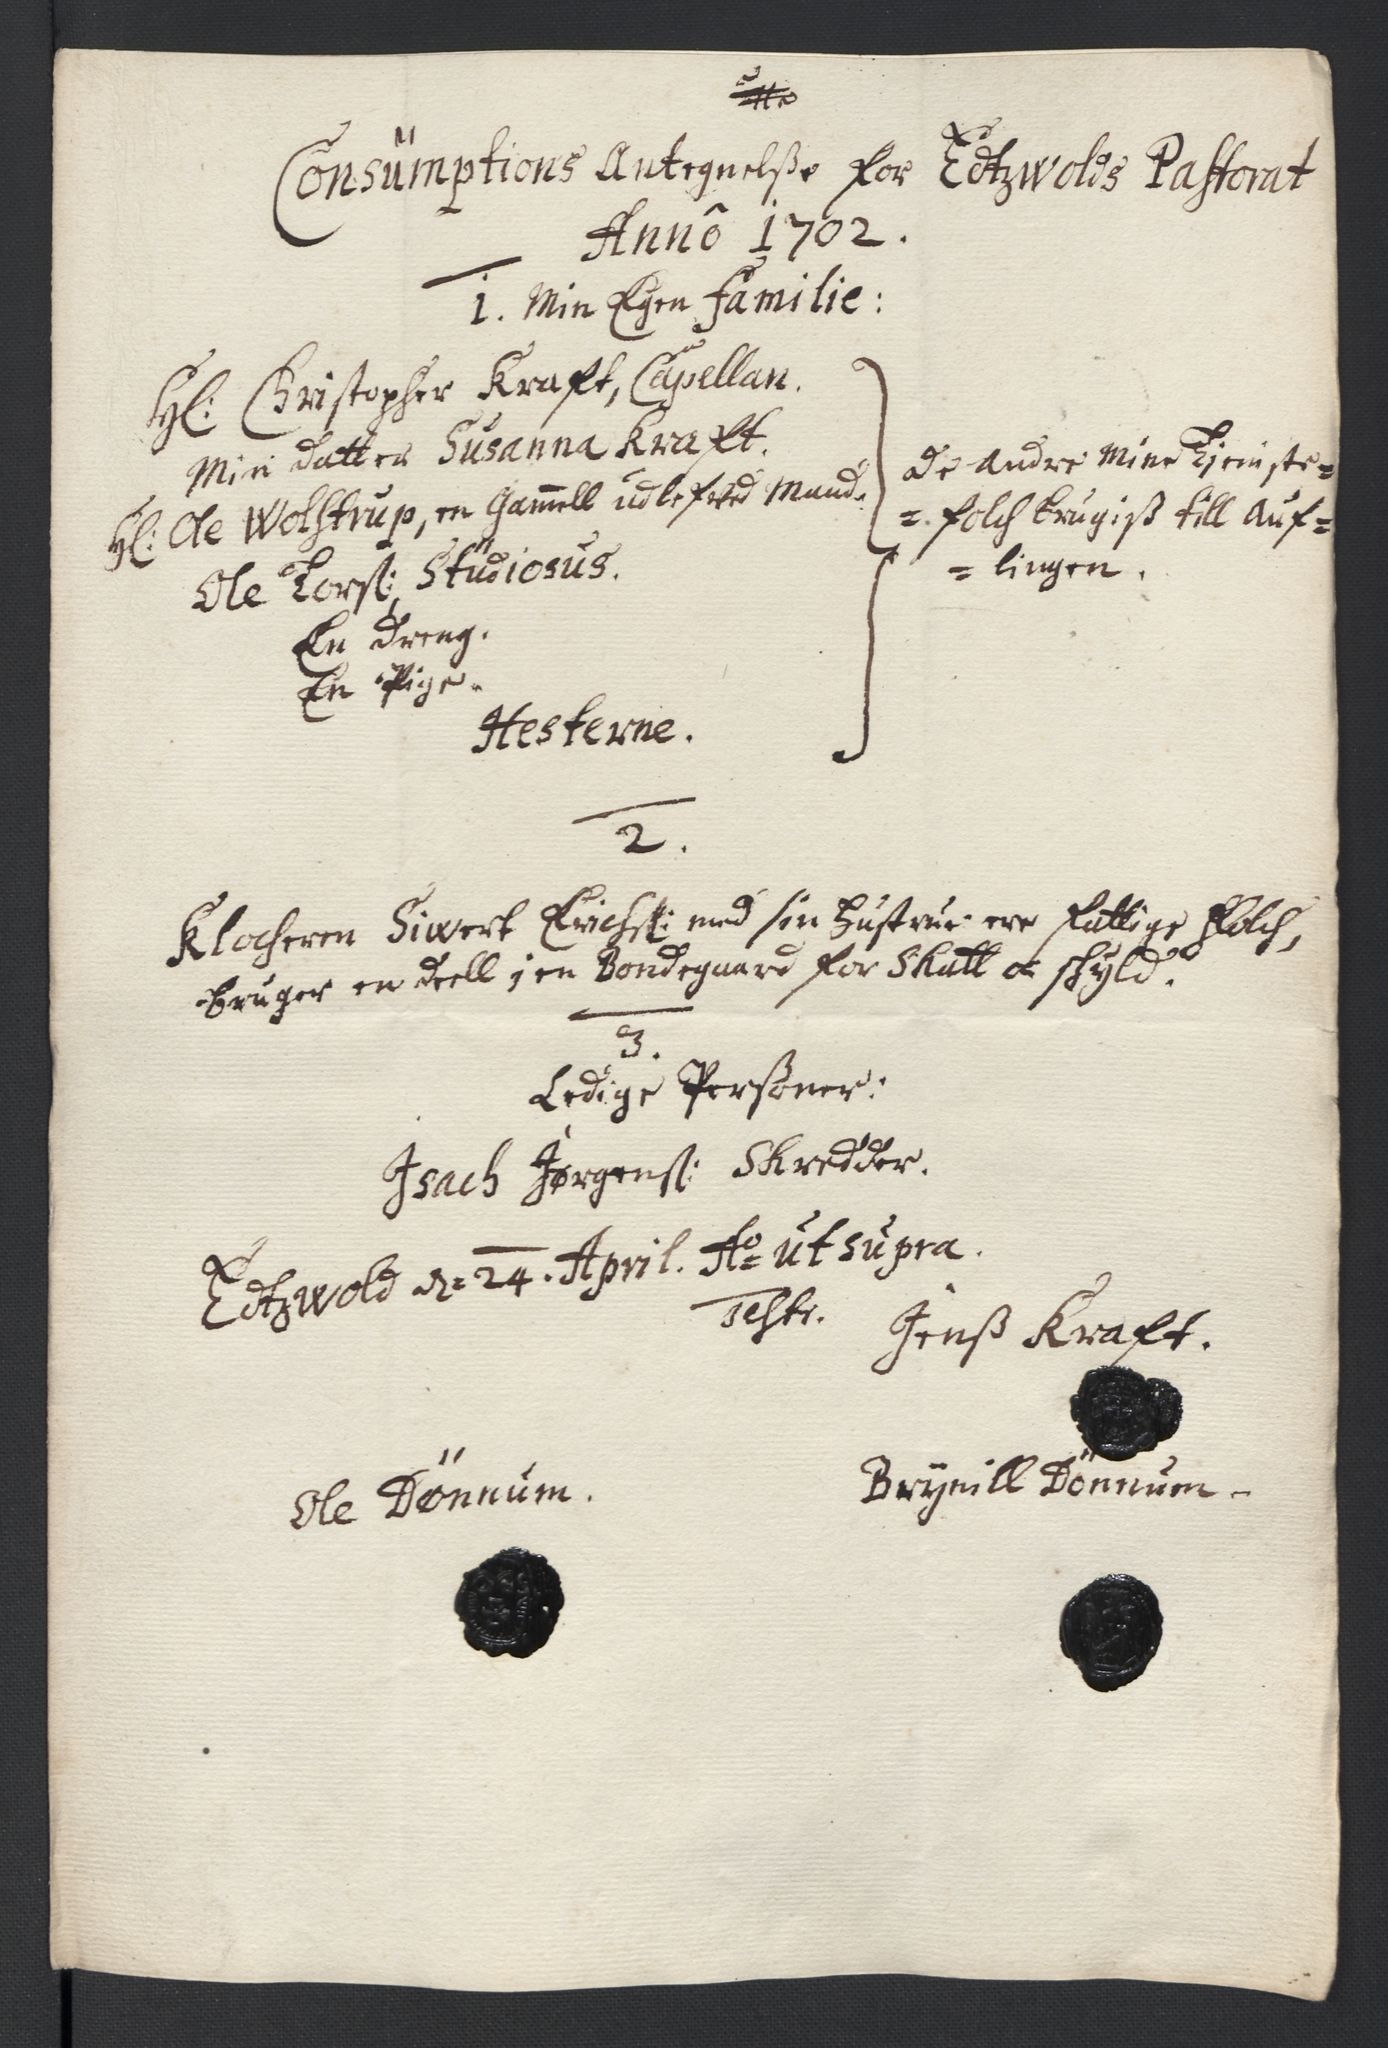 Consümptions Antegnelße for Edtzwolds Pastorat
Annô 1702.
1. Min Egen familie:
Hl: Christopher Kraft, Capellan.
Min datter Susanna Kraft.
Hl: Ole Wolstrup, en Gam̅ell udlefved Mand.
Ole Torß:, Stüdiosus.
En dreng.
En Pige.
Hesterne.
De andre mine Tjeniste=
=folch brugiß till Auf=
=lingen.
2.
Klocheren Siwert Erichß: med sin hustrue ere fattige folch,
bruger en deell i en Bondegaard for Skatt oc schyld.
3.
Ledige Personer:
Isach Jørgenß: Skredder.
Edtzwold dn 24. April. Ao ut supra.
Testr. Jenß Kraft.
Ole Dönnum.
Brynill Dönnum.